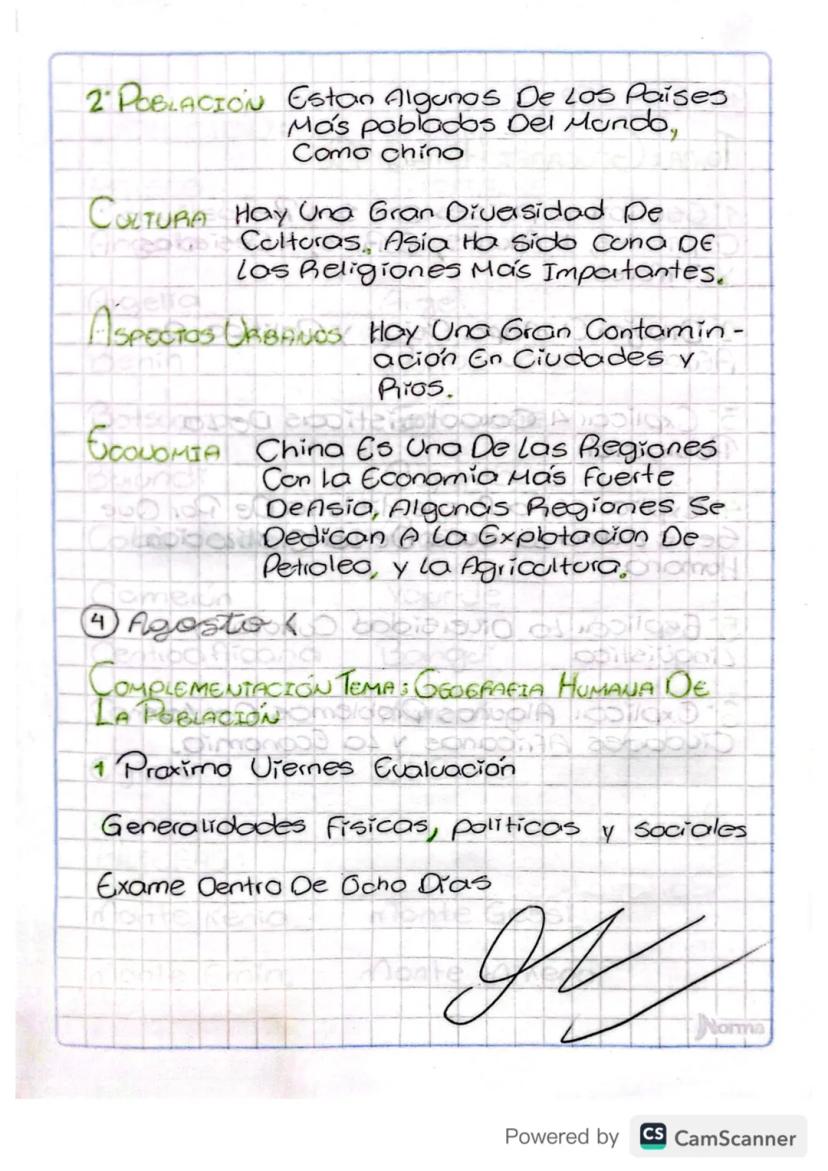 2° POBLACIÓN Estan Algunos De Los Países
Más poblados Del Mundo,
Como china
CULTURA Hay Una Gran Diversidad De
Culturas, Asia Ha Sido Cuna DE
las Religiones Más Importantes.
ASPECTOS URBANOS Hay Una Gran Contamin-
ación En Ciudades y
Ríos.
ECONOMIA China Es Una De Las Regiones
Con la Economía Más Fuerte
De Asia, Algunas Regiones Se
Dedican A La Explotacion De
Petroleo, y la Agricultura.
4 Agosto
COMPLEMENTACIÓN TEMA: GEOGRAFIA HUMANA DE
LA POBLACIÓN
1 Proximo Viernes Evaluación
Generalidades Físicas, políticas y sociales
Exame Dentro De Ocho Días
Norma
Powered by CS CamScanner